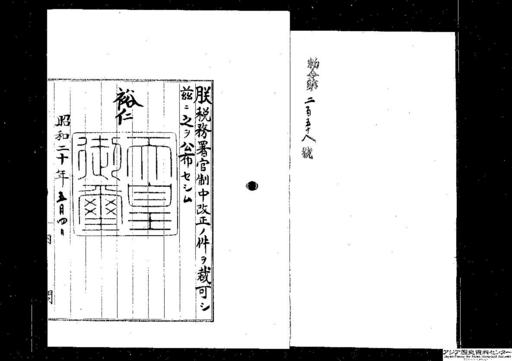 勅令第二百五十八號
朕税務署官制中改正ノ件ヲ裁可シ
茲ニ之ヲ公布セシム
裕仁
天皇御璽
昭和二十年五月四日
アジア歴史資料センター